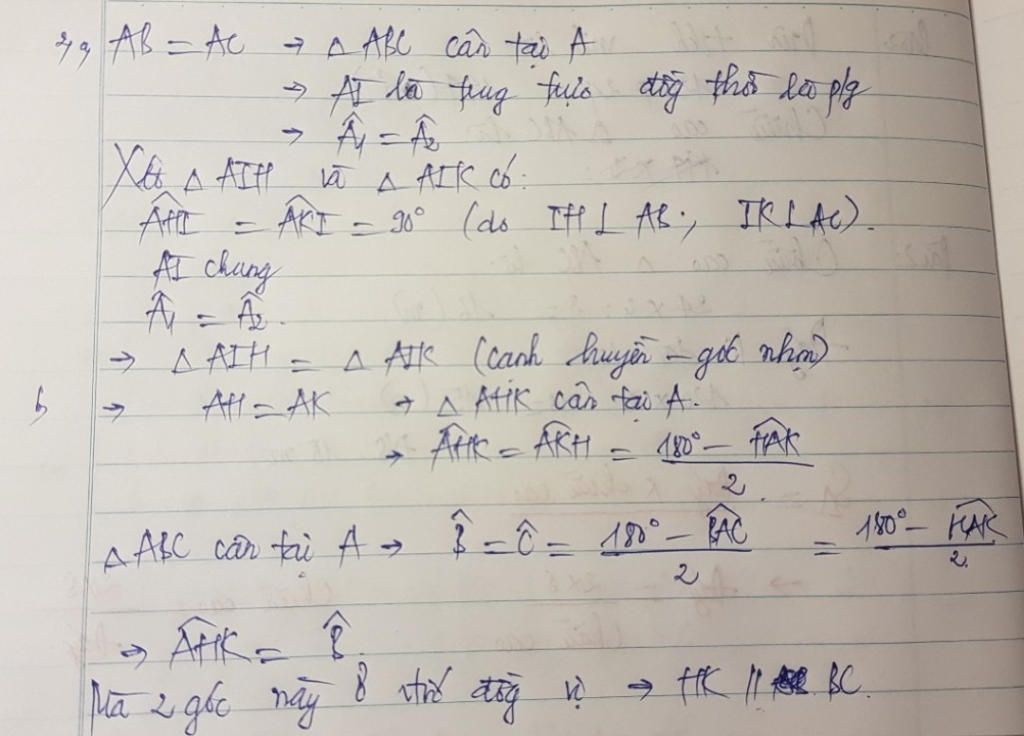 2, a, AB = AC → △ ABC cân tại A
→ AI là trung trực đồg thời là p/g
→ Â₁ = Â₂
Xét △ AIH và △ AIK có:
\widehat{AHI} = \widehat{AKI} = 90° (do IH ⊥ AB; IK ⊥ AC).
AI chung
Â₁ = Â₂.
→ △ AIH = △ AIK (cạnh huyền – góc nhọn)
b, → AH = AK → △ AHK cân tại A.
→ \widehat{AHK} = \widehat{AKH} = (180° – \widehat{HAK})/2.
△ ABC cân tại A → B̂ = Ĉ = (180° – \widehat{BAC})/2 = (180° – \widehat{HAK})/2.
→ \widehat{AHK} = B̂.
Mà 2 góc này ở vtrí đồg vị → HK // BC.